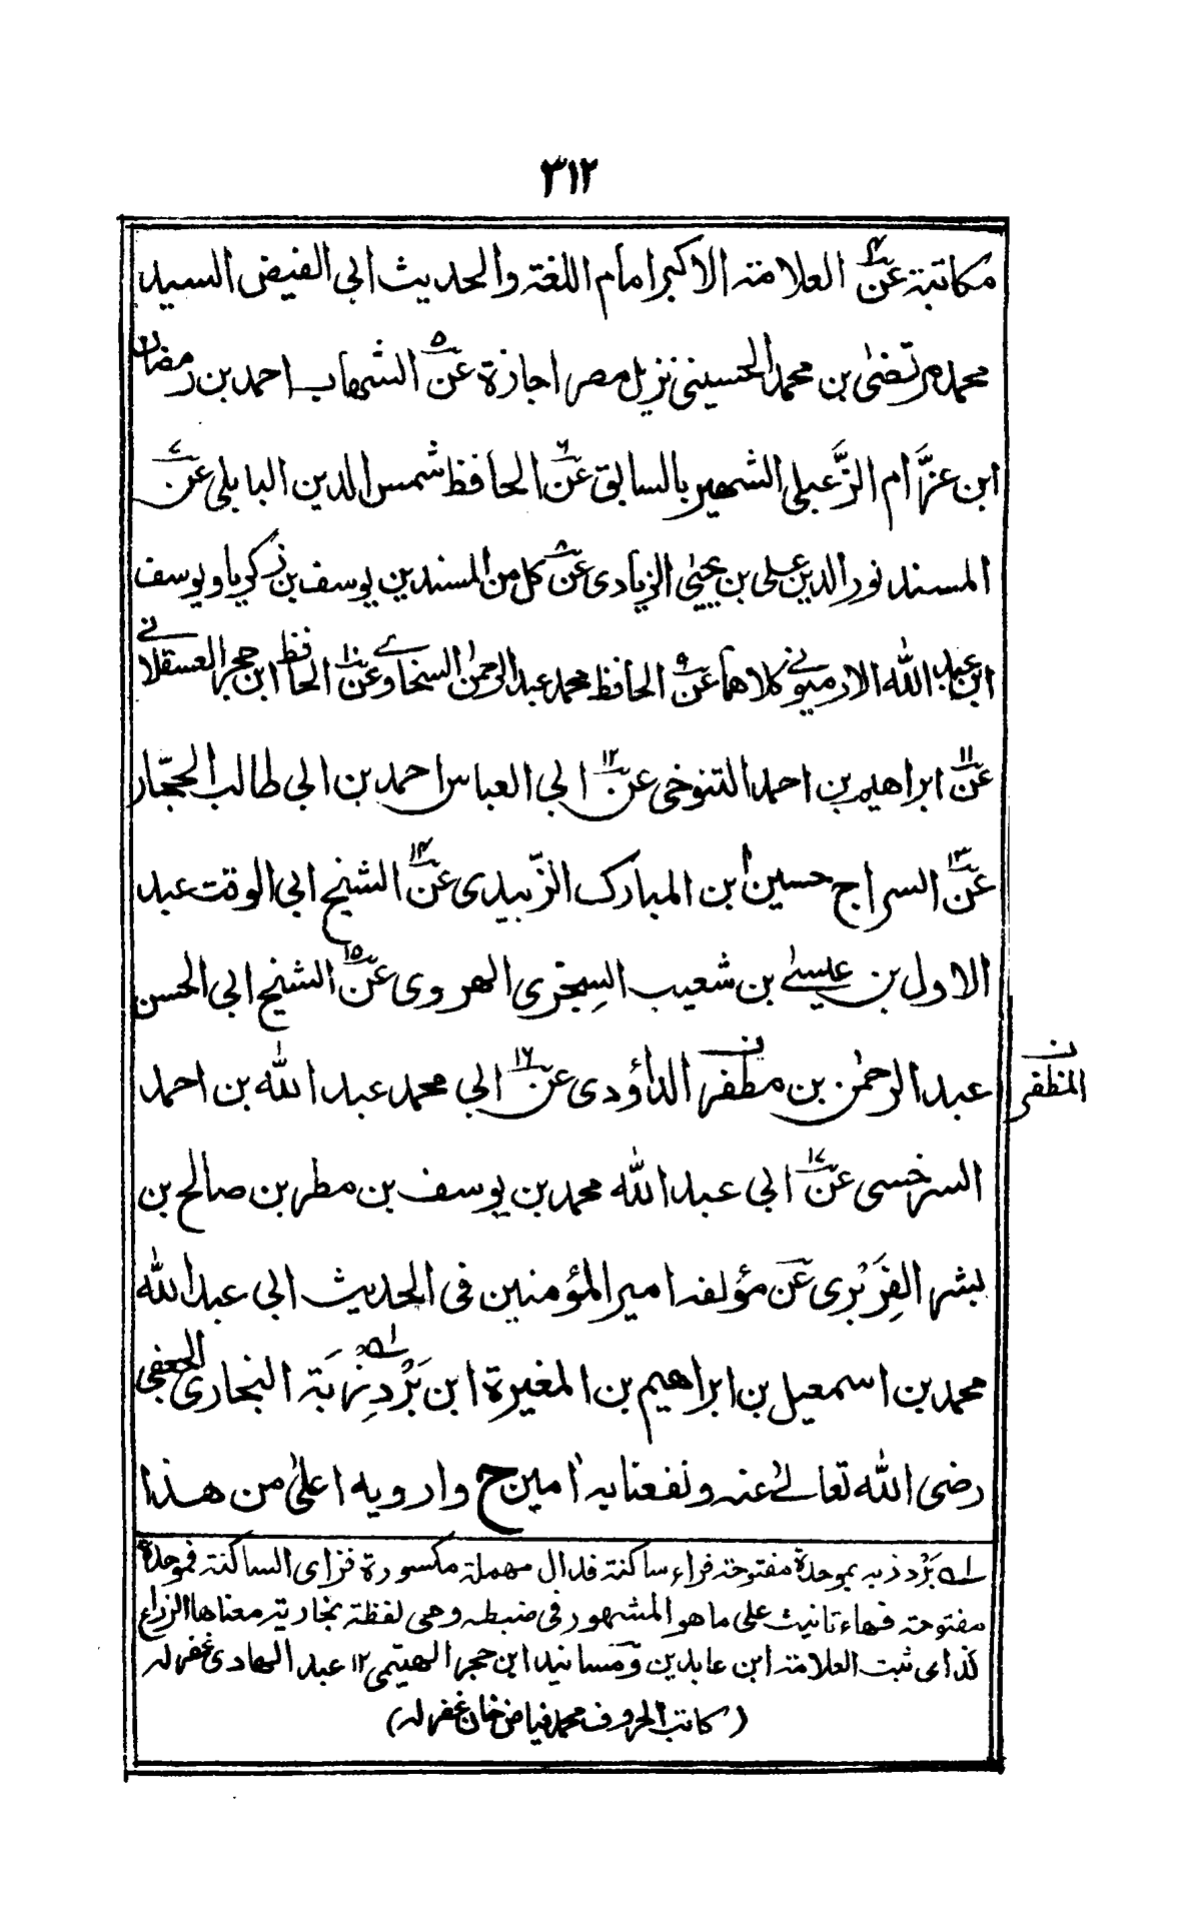 ٣١٢
مكاتبة عن٤ العلامة الاكبر امام اللغة والحديث ابي الفيض السيد
محمد مرتضىٰ بن محمد الحسيني نزيل مصر اجازة عن٥ الشهاب احمد بن رمضان
ابن عزَّام الزَّعبلي الشهير بالسابق عن٦ الحافظ شمس الدين البابلي عن٧
المسند نور الدين علي بن يحيىٰ الزيادي عن٨ كل من المسندين يوسف بن زكريا و يوسف
ابن عبد الله الارميوني كلاهما عن٩ الحافظ محمد عبد الرحمٰن السخاوي عن١٠ الحافظ ابن حجر العسقلاني
عن١١ ابراهيم بن احمد التنوخي عن١٢ ابي العباس احمد بن ابي طالب الحجّار
عن١٣ السراج حسين ابن المبارك الزّبيدي عن١٤ الشيخ ابي الوقت عبد
الاول بن عيسىٰ بن شعيب السِجزي الهروي عن١٥ الشيخ ابي الحسن
عبد الرحمٰن بن مظفر الداؤدي عن١٦ ابي محمد عبد الله بن احمد
ن المظفر
السرخسي عن١٧ ابي عبد الله محمد بن يوسف بن مطر بن صالح بن
بشر الفِرَبْري عن مؤلفه امير المؤمنين في الحديث ابي عبد الله
محمد بن اسمعيل بن ابراهيم بن المغيرة ابن بَرْدِزْبَة البخاري الجعفي
رضي الله تعالىٰ عنه و نفعنا به اٰمين ح وارويه اعلىٰ من هذا
لـه بَرْدذبه بموحدة مفتوحة فراء ساكنة فدال مهملة مكسورة فزاى الساكنة فموحدة
مفتوحة فهاء تانيث على ما هو المشهور في ضبطه وهي لفظة بخارية معناها الزراع
كذا في ثبت العلامة ابن عابدين ومسانيد ابن حجر الهيتمي ١٢ عبد الهادي غفرله
(كاتب الحروف محمد فياض خان غفرله)